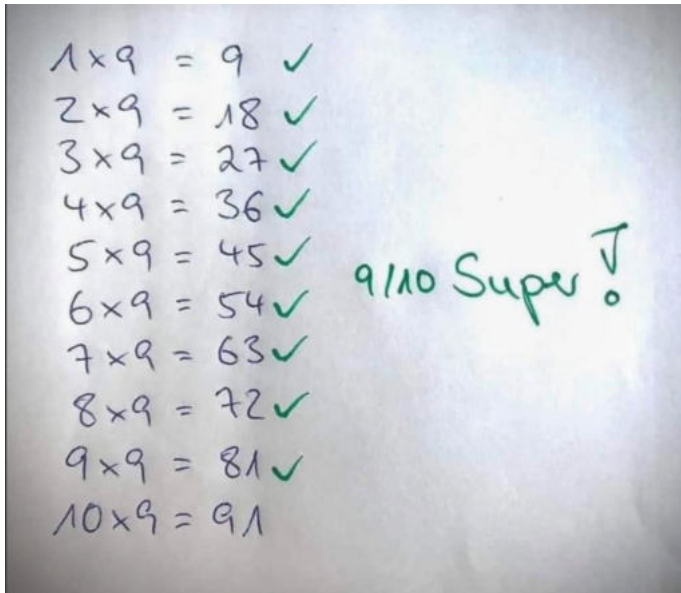 1 × 9 = 9 ✓
2 × 9 = 18 ✓
3 × 9 = 27 ✓
4 × 9 = 36 ✓
5 × 9 = 45 ✓
6 × 9 = 54 ✓
7 × 9 = 63 ✓
8 × 9 = 72 ✓
9 × 9 = 81 ✓
10 × 9 = 91
9/10 Super!